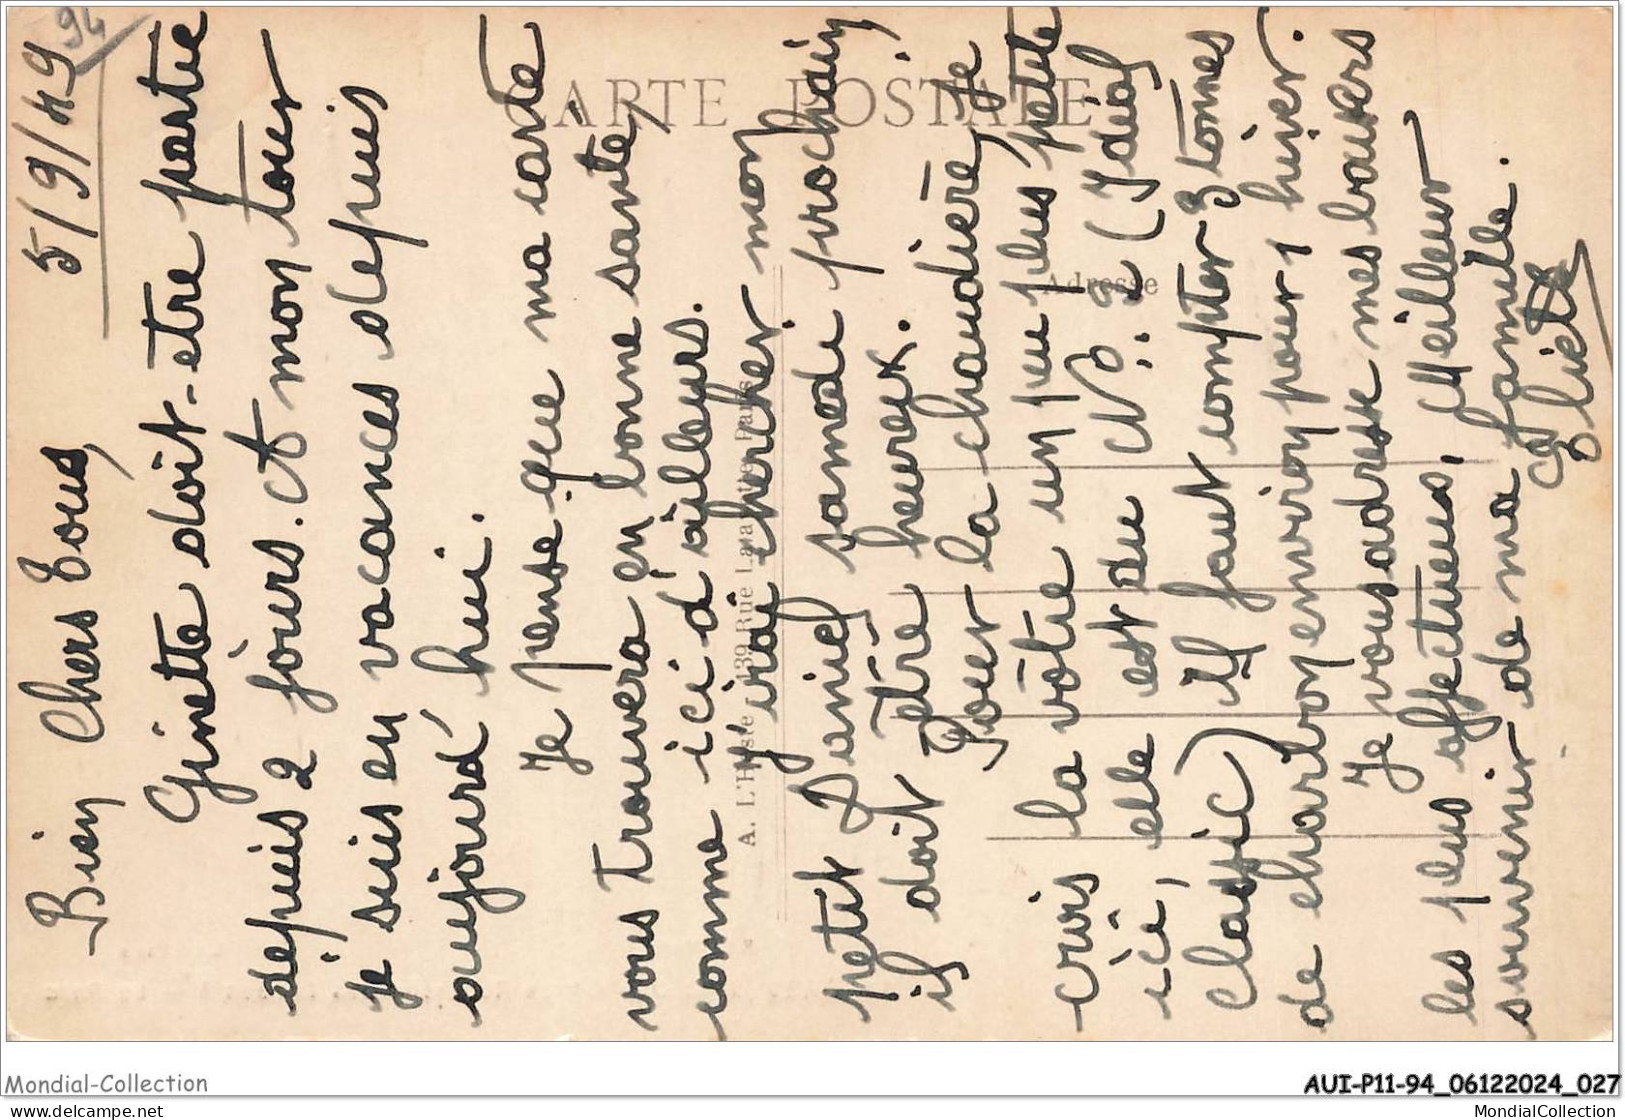 94
5/9/49
Bien Chers Tous,
Ginette doit-être partie
depuis 2 jours. Et mon tour
je suis en vacances depuis
aujourd'hui.
Je pense que ma carte
vous trouvera en bonne santé,
comme ici d'ailleurs.
J'irai chercher mon
petit Daniel samedi prochain,
il doit être heureux.
Pour la chaudière, je
crois la vôtre un peu plus petite
ici, elle est du N°: 2 (Idéal
Classic) Il faut compter 3 tonnes
de charbon environ pour 1 hiver.
Je vous adresse mes baisers
les plus affectueux, Meilleur
souvenir de ma famille.
CARTE POSTALE
Adresse
A. L'Hoste 139 Rue Paris
Mondial-Collection
AUI-P11-94_06122024_027
www.delcampe.net
MondialCollection